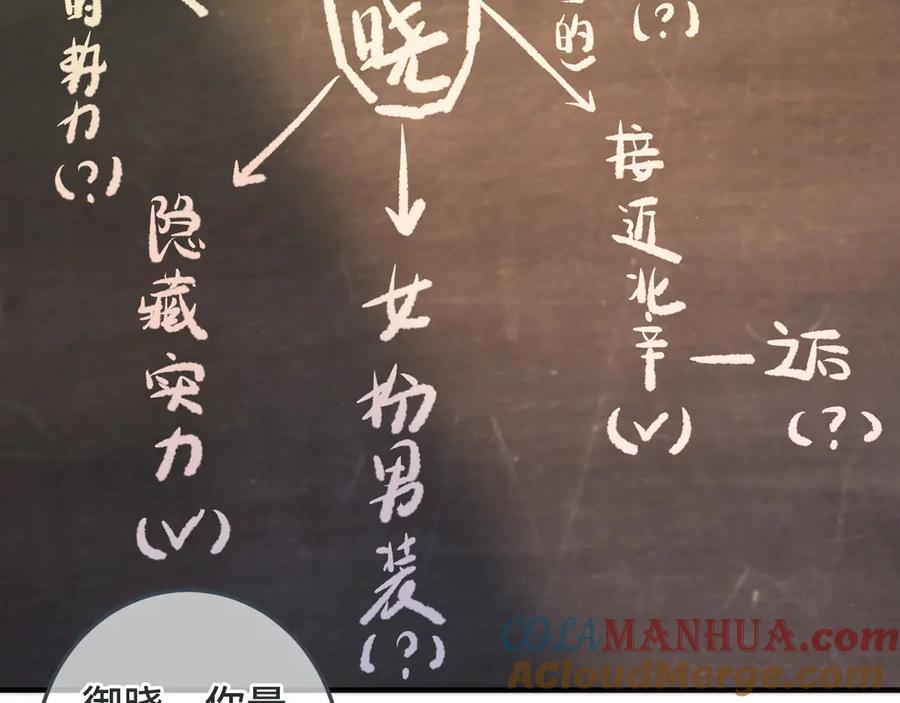 的势力(?)
晓
的)
(?)
隐藏实力(√)
女扮男装(?)
接近北辛(√)
—之后(?)
COLAMANHUA.com
ACloudMerge.com
御晓，你是